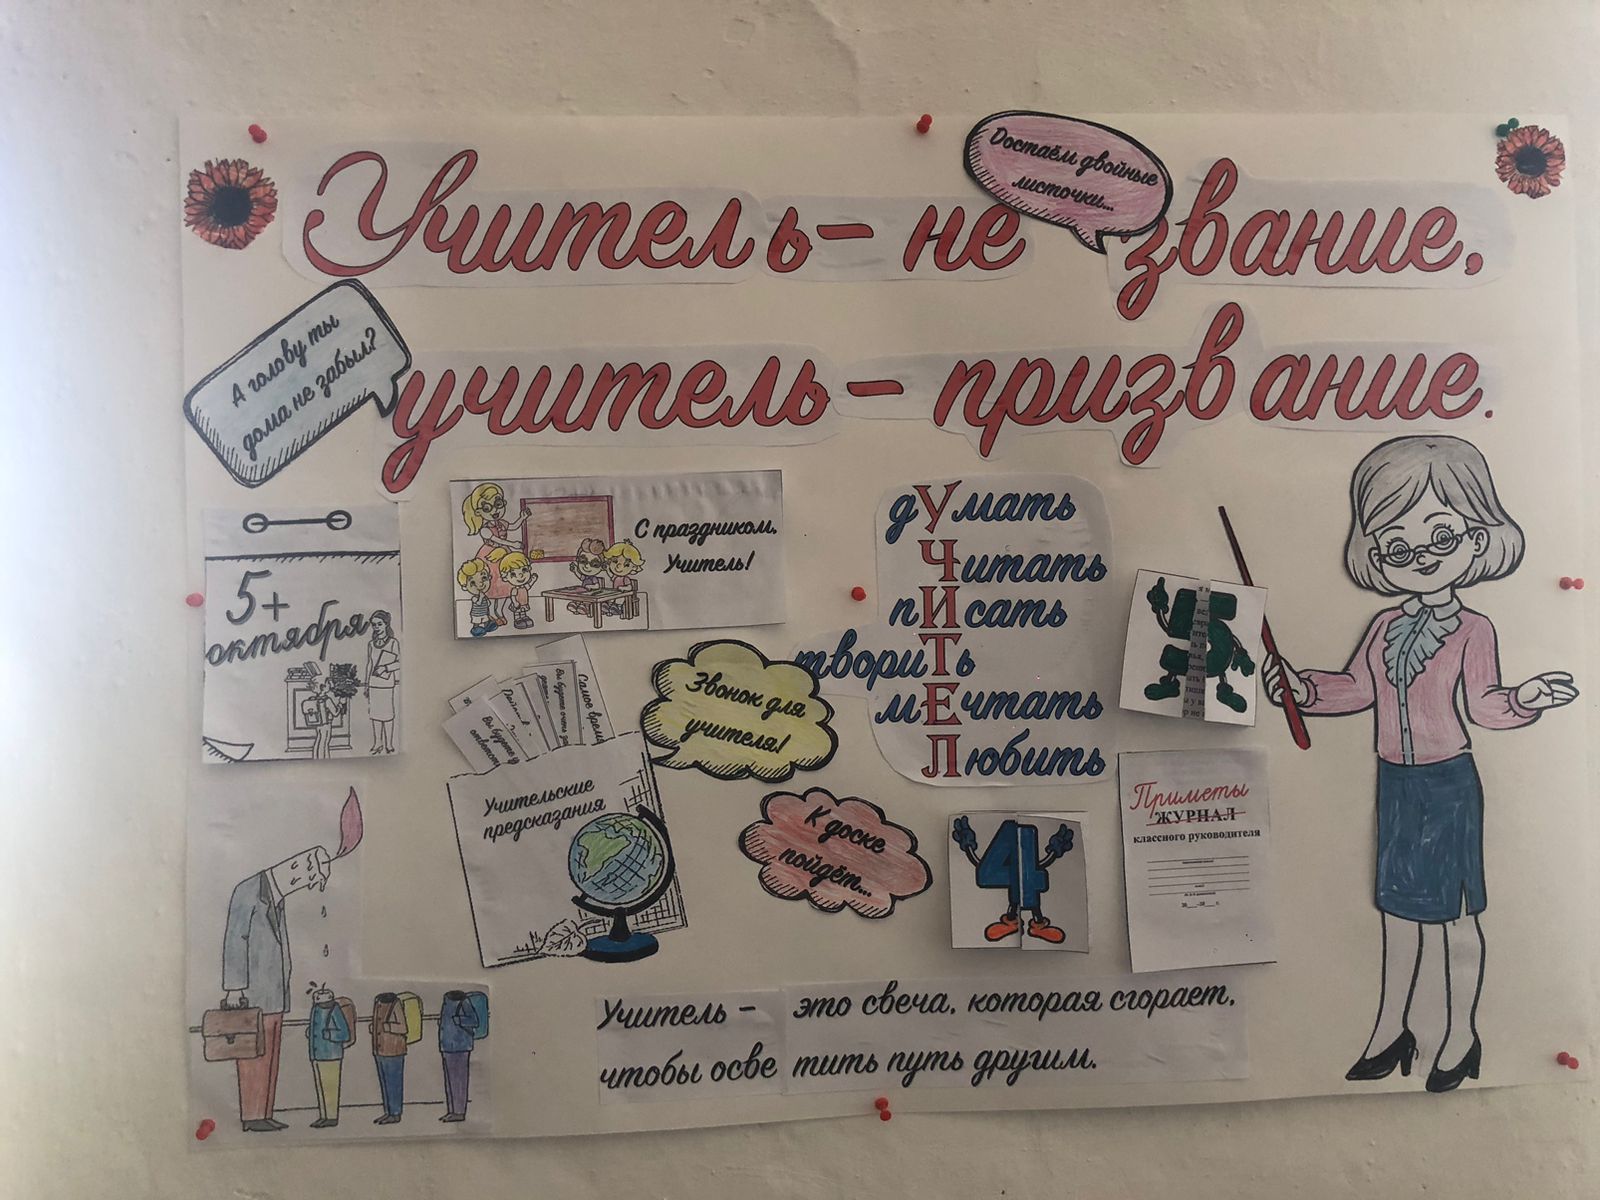 Достаём двойные
листочки...
Учитель - не звание,
учитель - призвание.
А голову ты
дома не забыл?
5+
октября
С праздником,
Учитель!
дУмать
Читать
пИсать
твориТь
мЕчтать
Любить
Самое время
Вы будете
Учительские
предсказания
Звонок для
учителя!
К доске
пойдёт...
4
Приметы
ЖУРНАЛ
классного руководителя
Учитель - это свеча, которая сгорает,
чтобы осветить путь другим.